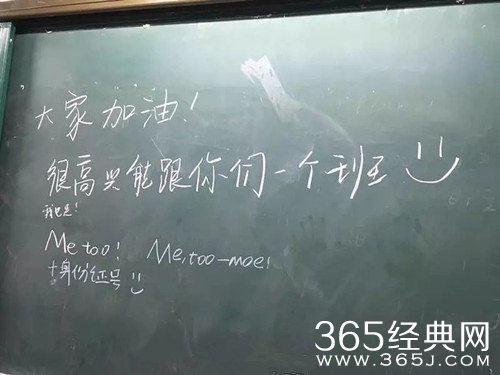 大家加油!
很高兴能跟你们一个班
我也是!
Me too! Me, too-moe!
+身份证号
365经典网
WWW.365J.COM